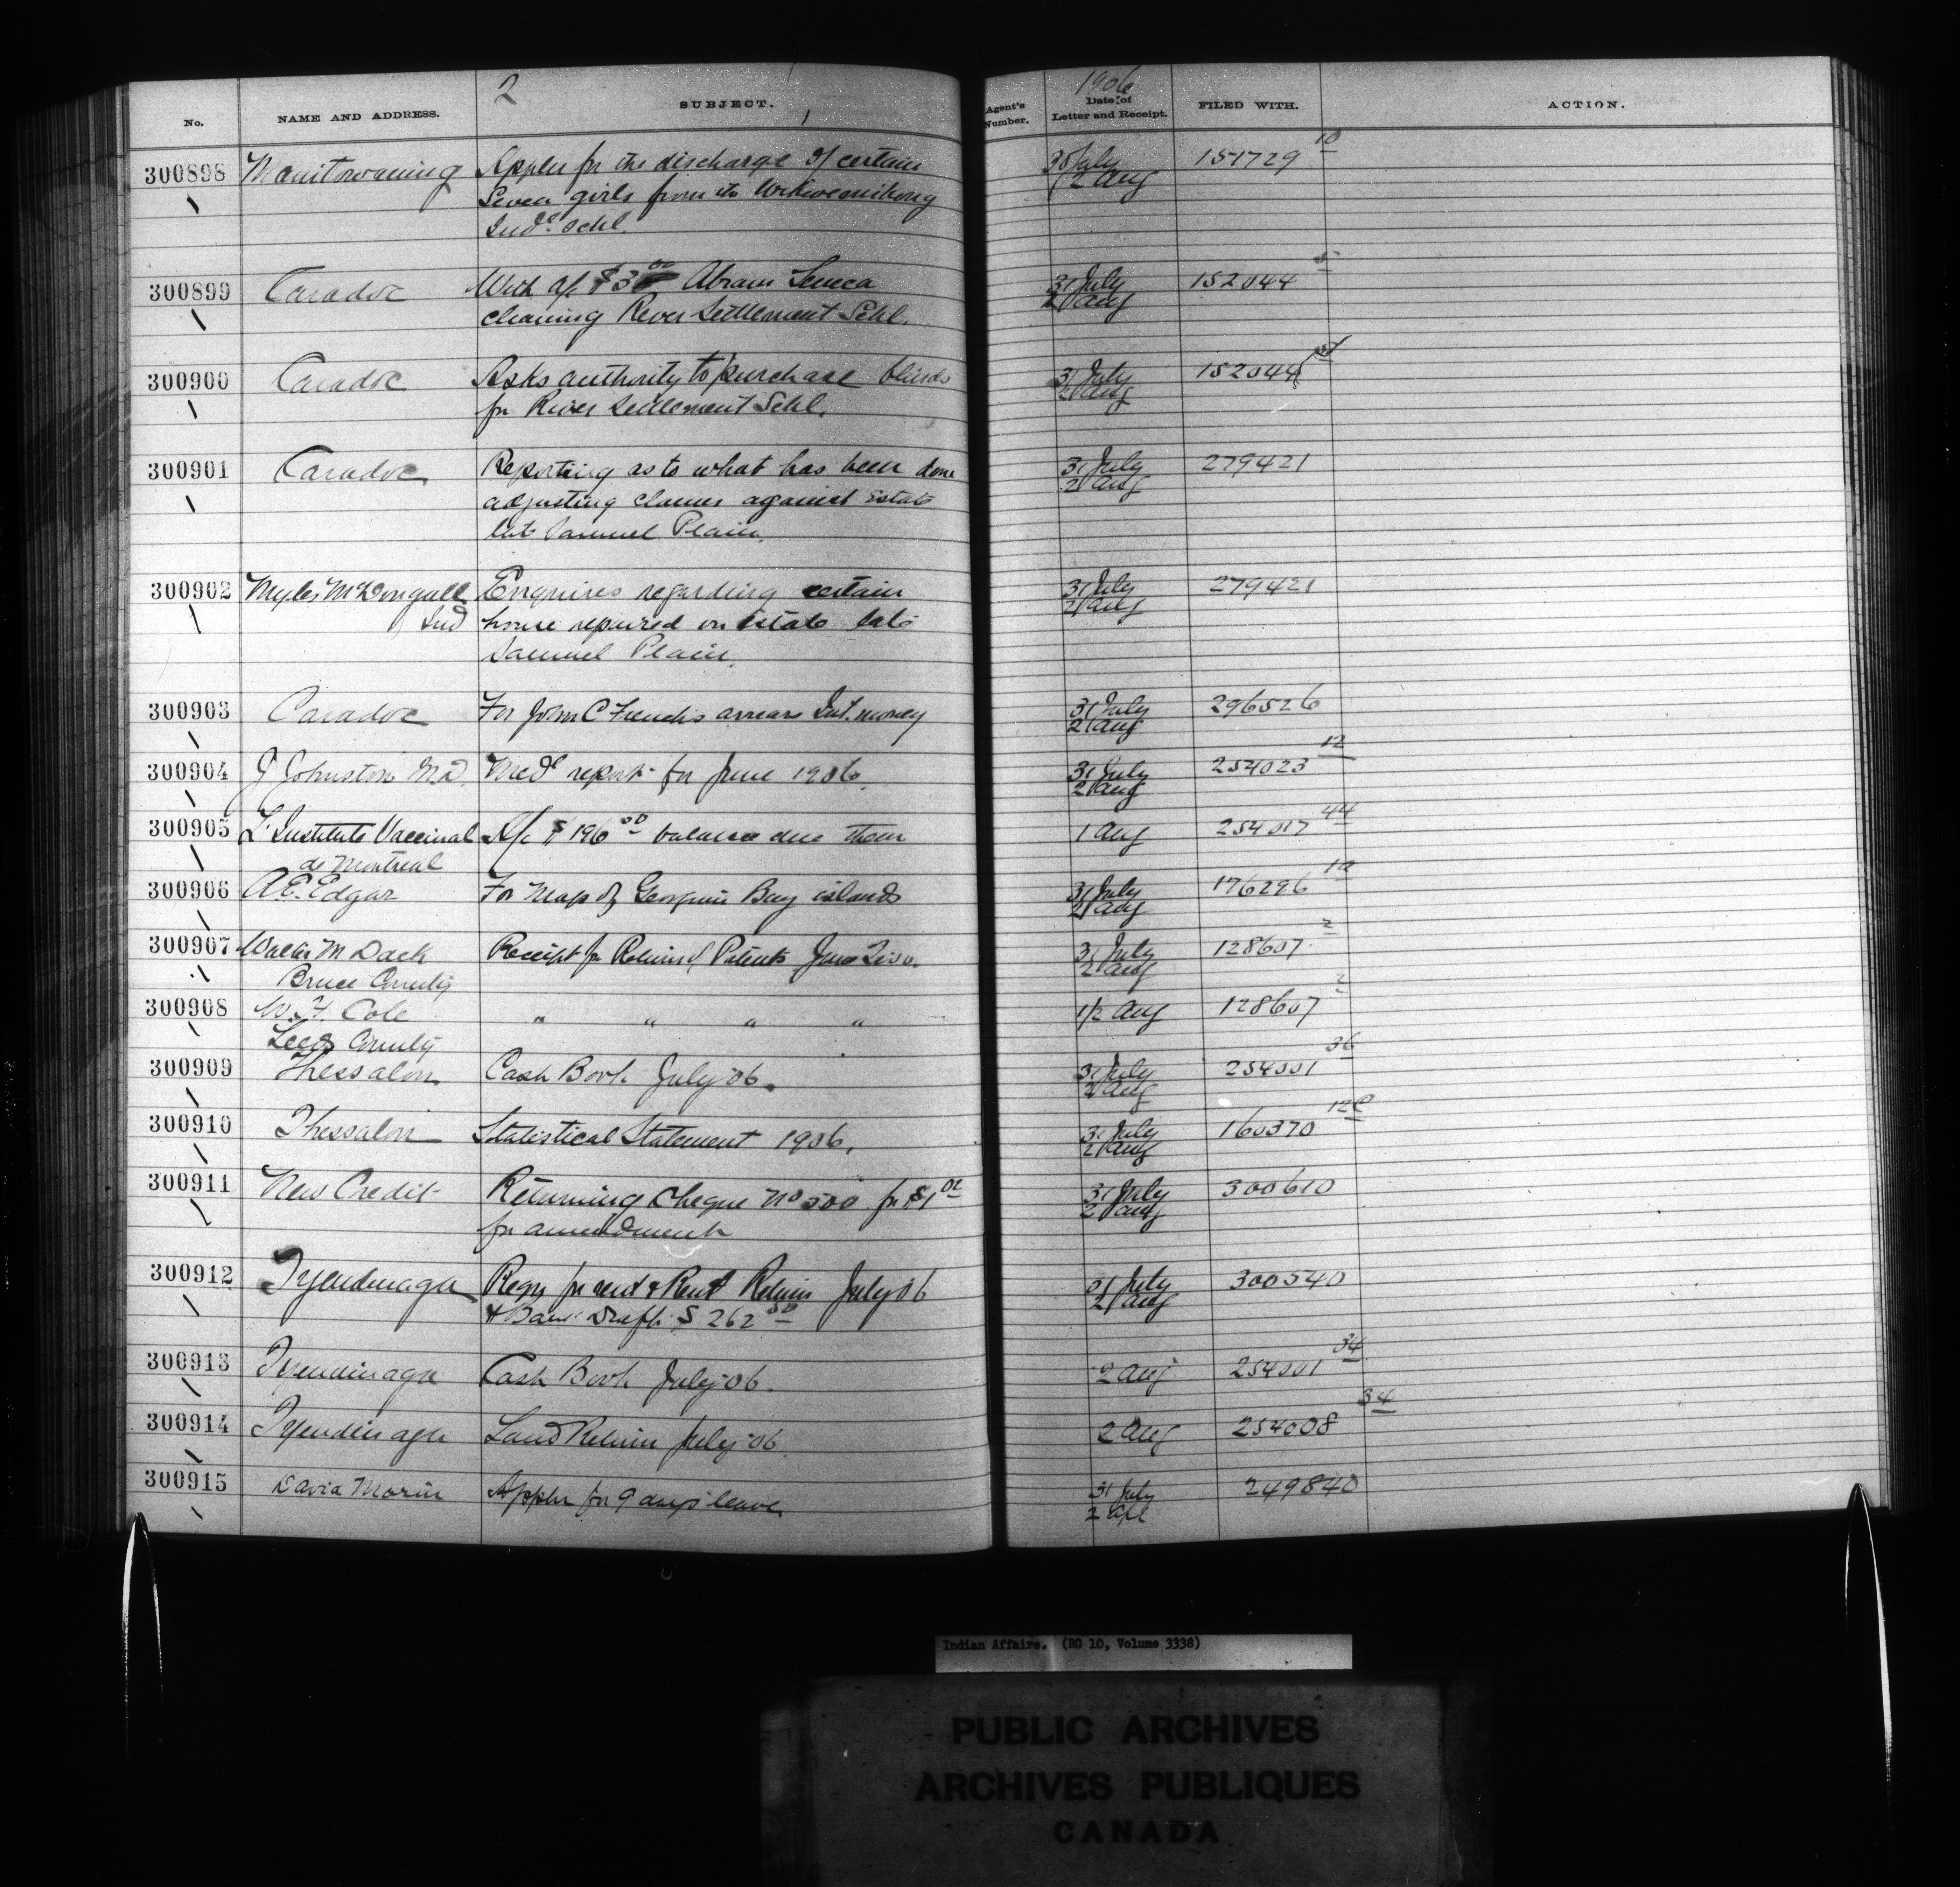 2
1906
No. NAME AND ADDRESS. SUBJECT. Agent's Number. Date of Letter and Receipt. FILED WITH. ACTION.
300898 Manitowaning Appln for the discharge of certain 30 July 151729 10
Seven girls from the Wikwemikong 2 Aug
Indl. Schl.
300899 Caradoc With a/c $3 00 Abram Seneca 31 July 152044 5
cleaning River Settlement Schl. 2 Aug
300900 Caradoc Asks authority to purchase blinds 31 July 152044
for River Settlement Schl. 2 Aug
300901 Caradoc Reporting as to what has been done 31 July 279421
adjusting claims against Estate 2 Aug
late Samuel Plain.
300902 Myles McDougall Enquires regarding certain 31 July 279421
Ind house repaired on Estate late 2 Aug
Samuel Plain.
300903 Caradoc For John C French's arrears Int. money 31 July 296526
2 Aug
300904 J Johnston M.D. Medl report for June 1906. 31 July 254023 12
2 Aug
300905 L'Institute Vaccinal A/c $196 00 balance due them 1 Aug 254017 44
de Montreal
300906 A.E. Edgar For Map of Georgian Bay islands 31 July 176296 12
2 Aug
300907 Walter M Dack Receipt for Return of Patents June 31 July 128607 2
Bruce County 2 Aug
300908 W. Cole " " " " 1/2 Aug 128607 2
Leeds County
300909 Thessalon Cash Book July 06. 31 July 254001 36
2 Aug
300910 Thessalon Statistical Statement 1906. 31 July 160370 12
2 Aug
300911 New Credit Returning Cheque No 500 for $1 31 July 300610
for amendment 2 Aug
300912 Tyendinaga Reqn for rent & Rent Return July 06 31 July 300540
& Bank Draft $262 50 2 Aug
300913 Tyendinaga Cash Book July 06. 2 Aug 254001 34
300914 Tyendinaga Land Return July 06. 2 Aug 254008 34
300915 David Morin Appln for 9 days leave. 31 July 249840
2
Indian Affairs. (RG 10, Volume 3338)
PUBLIC ARCHIVES
ARCHIVES PUBLIQUES
CANADA